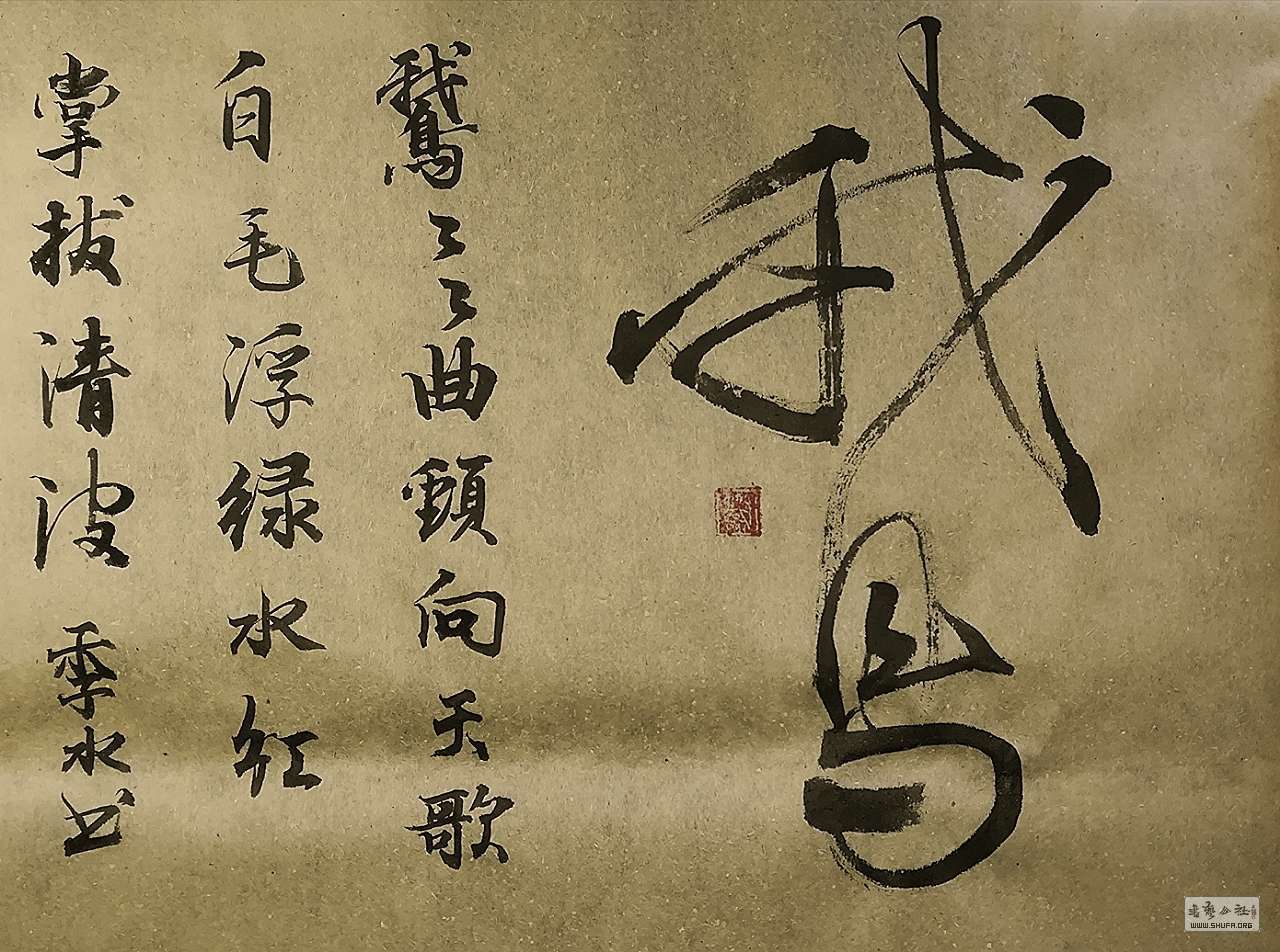 鵞
鵞々々曲頸向天歌
白毛浮绿水红
掌拔清波 水书
書藝公社
WWW.SHUFA.ORG